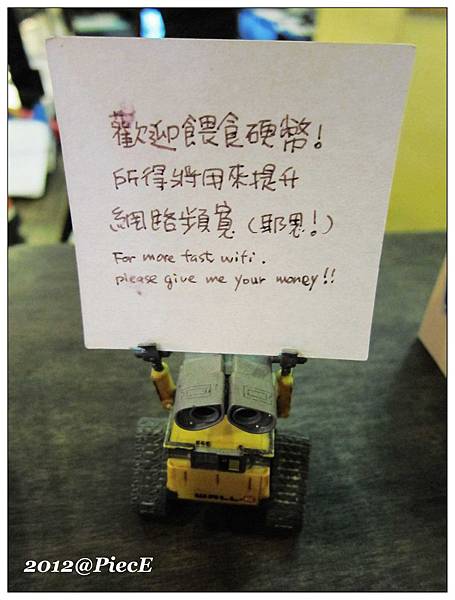 歡迎餵食硬幣!
所得將用來提升
網路頻寬(耶思!)
For more fast wifi.
please give me your money!!
WALL·E
2012@PiecE